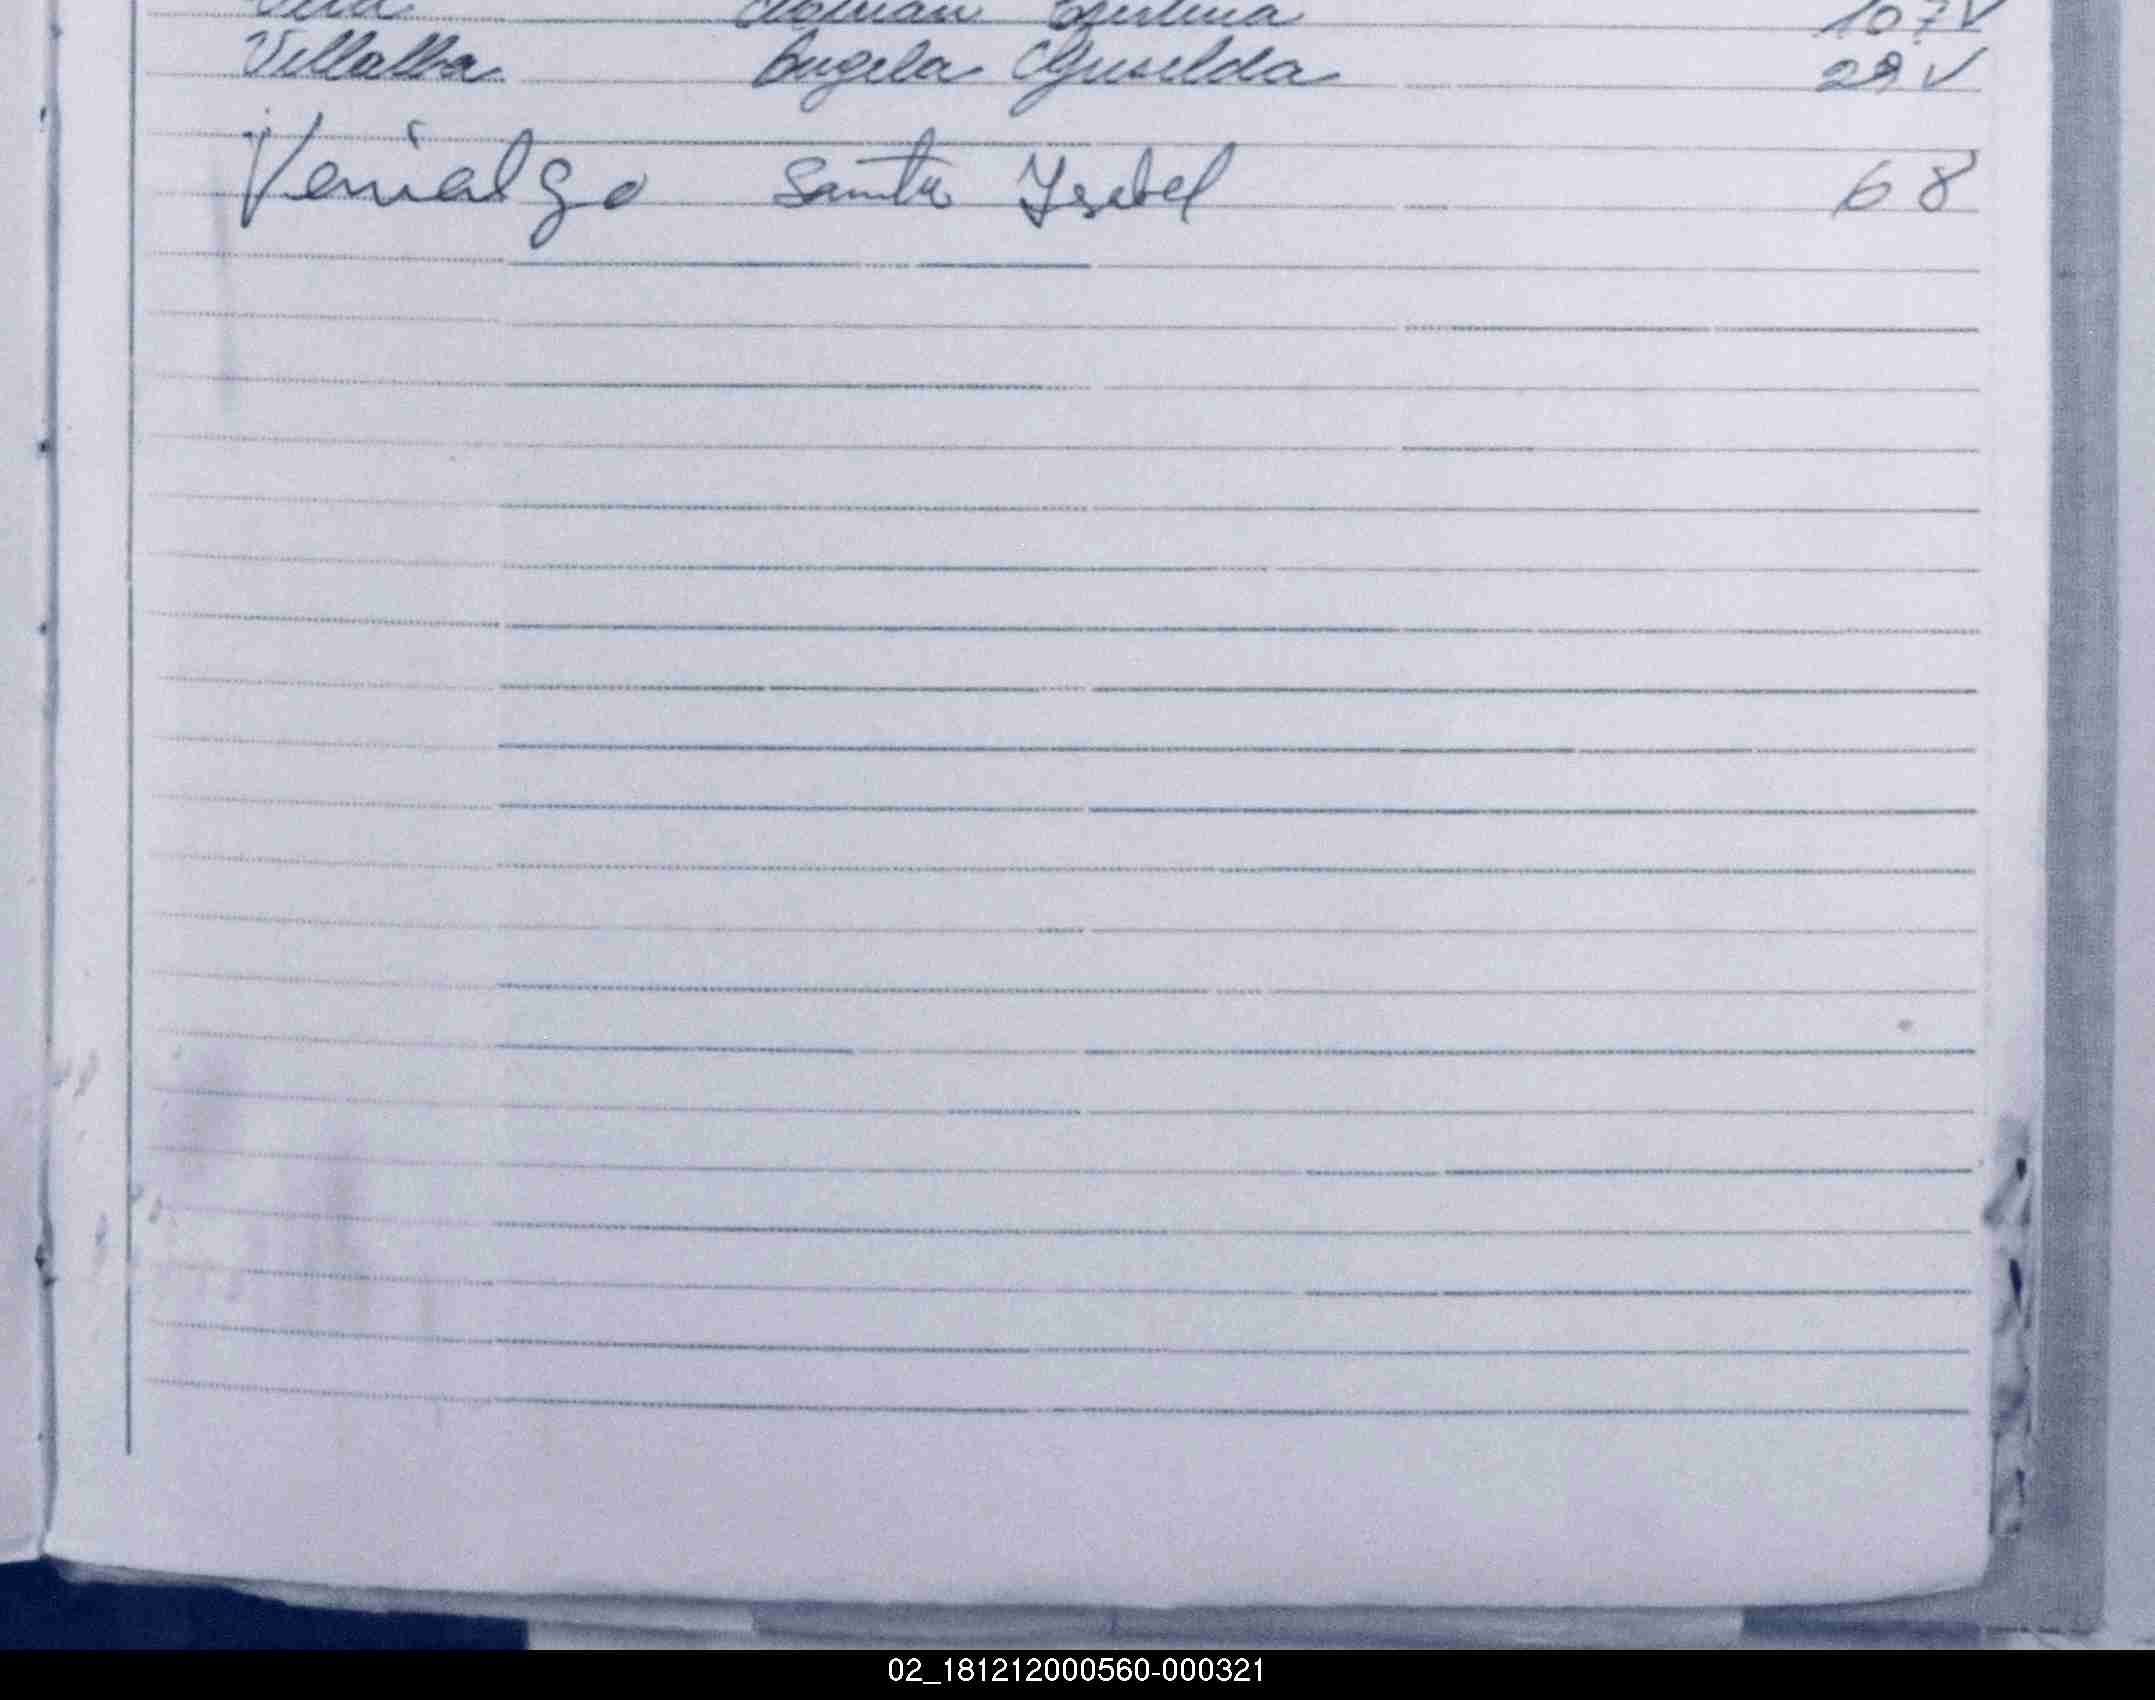 Vera Cristina 107 V
Villalba Angela Griselda 29 V
Venialgo Santa Ysabel 68
02_181212000560-000321